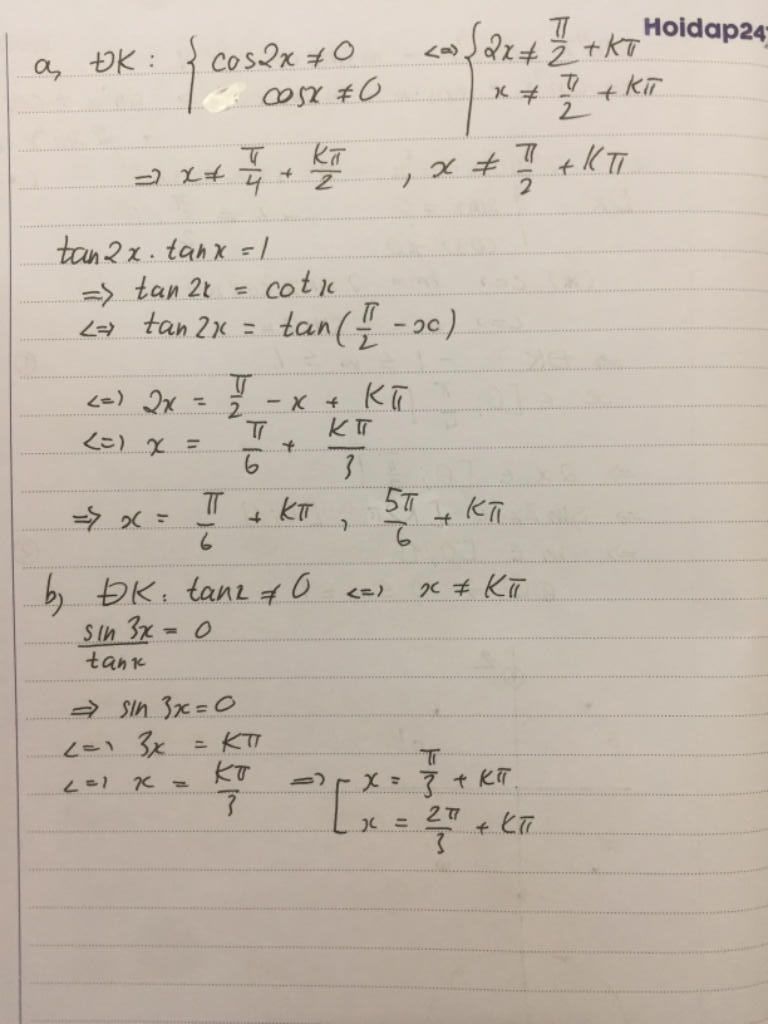 Hoidap247
a, ĐK: { cos2x ≠ 0 <=> { 2x ≠ π/2 + kπ
cosx ≠ 0 x ≠ π/2 + kπ
=> x ≠ π/4 + kπ/2 , x ≠ π/2 + kπ
tan2x . tanx = 1
=> tan2x = cotx
<=> tan2x = tan(π/2 - x)
<=> 2x = π/2 - x + kπ
<=> x = π/6 + kπ/3
=> x = π/6 + kπ , 5π/6 + kπ
b, ĐK: tanx ≠ 0 <=> x ≠ kπ
sin 3x/tanx = 0
=> sin 3x = 0
<=> 3x = kπ
<=> x = kπ/3 => [ x = π/3 + kπ.
x = 2π/3 + kπ